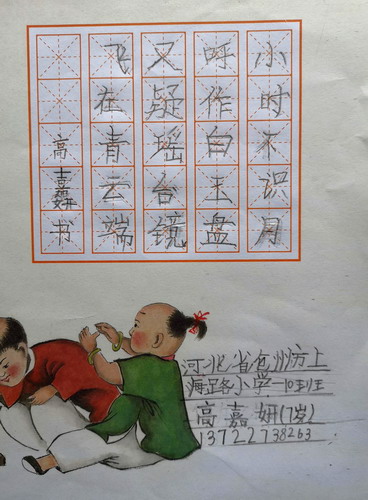 小时不识月
呼作白玉盘
又疑瑶台镜
飞在青云端
高嘉妍书
河北省沧州方上
海足各小学一10班班
高嘉妍(7岁)
13722738263